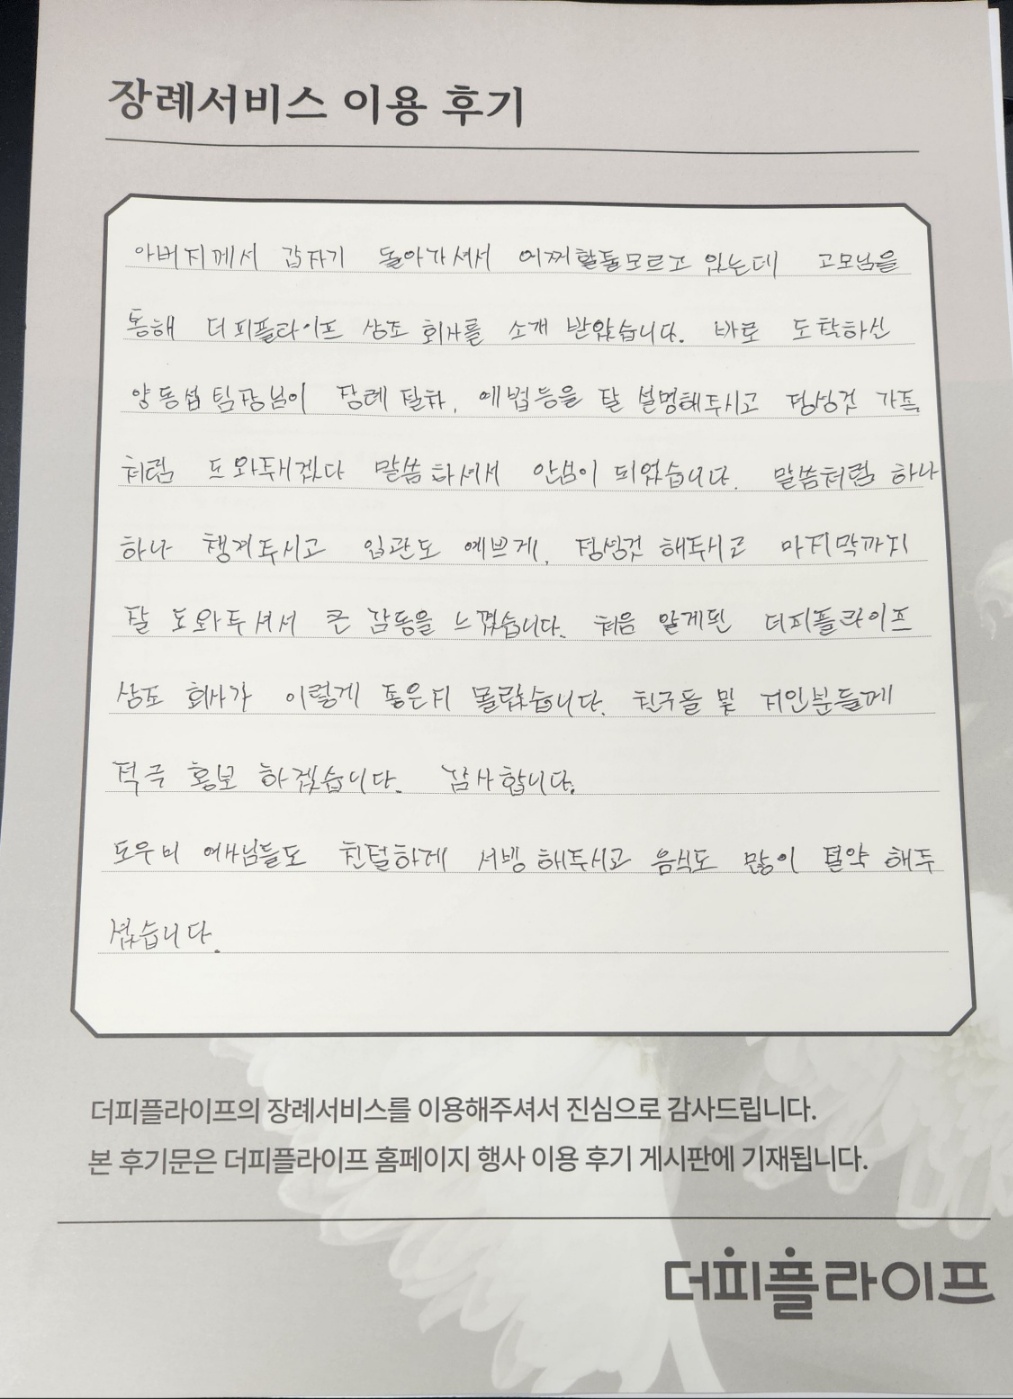 장례서비스 이용 후기
아버지께서 갑자기 돌아가셔서 어찌할줄모르고 있는데 고모님을
통해 더피플라이프 상조 회사를 소개 받았습니다. 바로 도착하신
양동섭 팀장님이 장례 절차, 예법등을 잘 설명해주시고 정성껏 가족
처럼 도와주시겠다 말씀하셔서 안심이 되었습니다. 말씀처럼 하나
하나 챙겨주시고 입관도 예쁘게, 정성껏 해주시고 마지막까지
잘 도와주셔서 큰 감동을 느꼈습니다. 처음 알게된 더피플라이프
상조 회사가 이렇게 좋은지 몰랐습니다. 친구들 및 지인분들께
적극 홍보 하겠습니다. 감사합니다.
도우미 여사님들도 친절하게 서빙 해주시고 음식도 많이 절약 해주
셨습니다.
더피플라이프의 장례서비스를 이용해주셔서 진심으로 감사드립니다.
본 후기문은 더피플라이프 홈페이지 행사 이용 후기 게시판에 기재됩니다.
더피플라이프